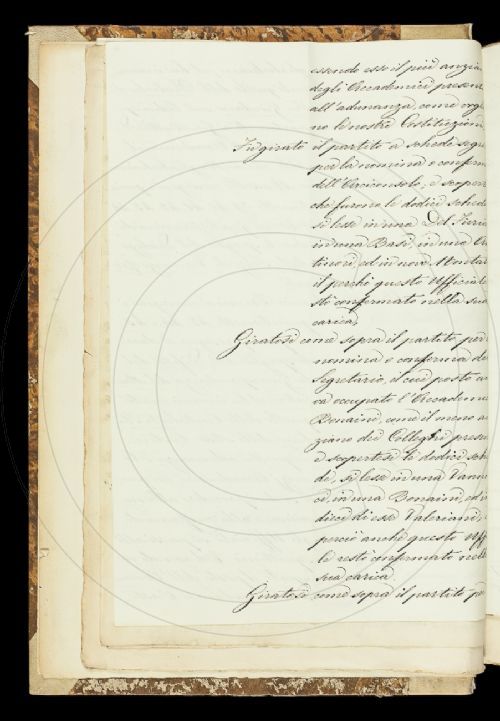 essendo esso il più anzia
degli Accademici present
all'adunanza, come orgi
no le nostre Costituzioni
Fu girato il partito a schede segr
per la nomina o conferm
dell'Arciconsolo, e scopert
che furono le dodici schede
si lesse in una Del Furia
in una Basi, in una
ed in nove Montal
il perchè questo Uffiziale
stò confermato nella sua
carica.
Giratosi come sopra il partito per
nomina o conferma de
Segretario, il cui posto a
va occupato l'Accademi
Bonaini, come il meno a
ziano dei Colleghi presen
e scopertesi le dodici sche
de, si lesse in una Vannu
ci, in una Bonaini, ed in
dieci di esse Valeriani,
perciò anche questo Uffi
le restò confermato nell
sua carica.
Giratosi come sopra il partito pe